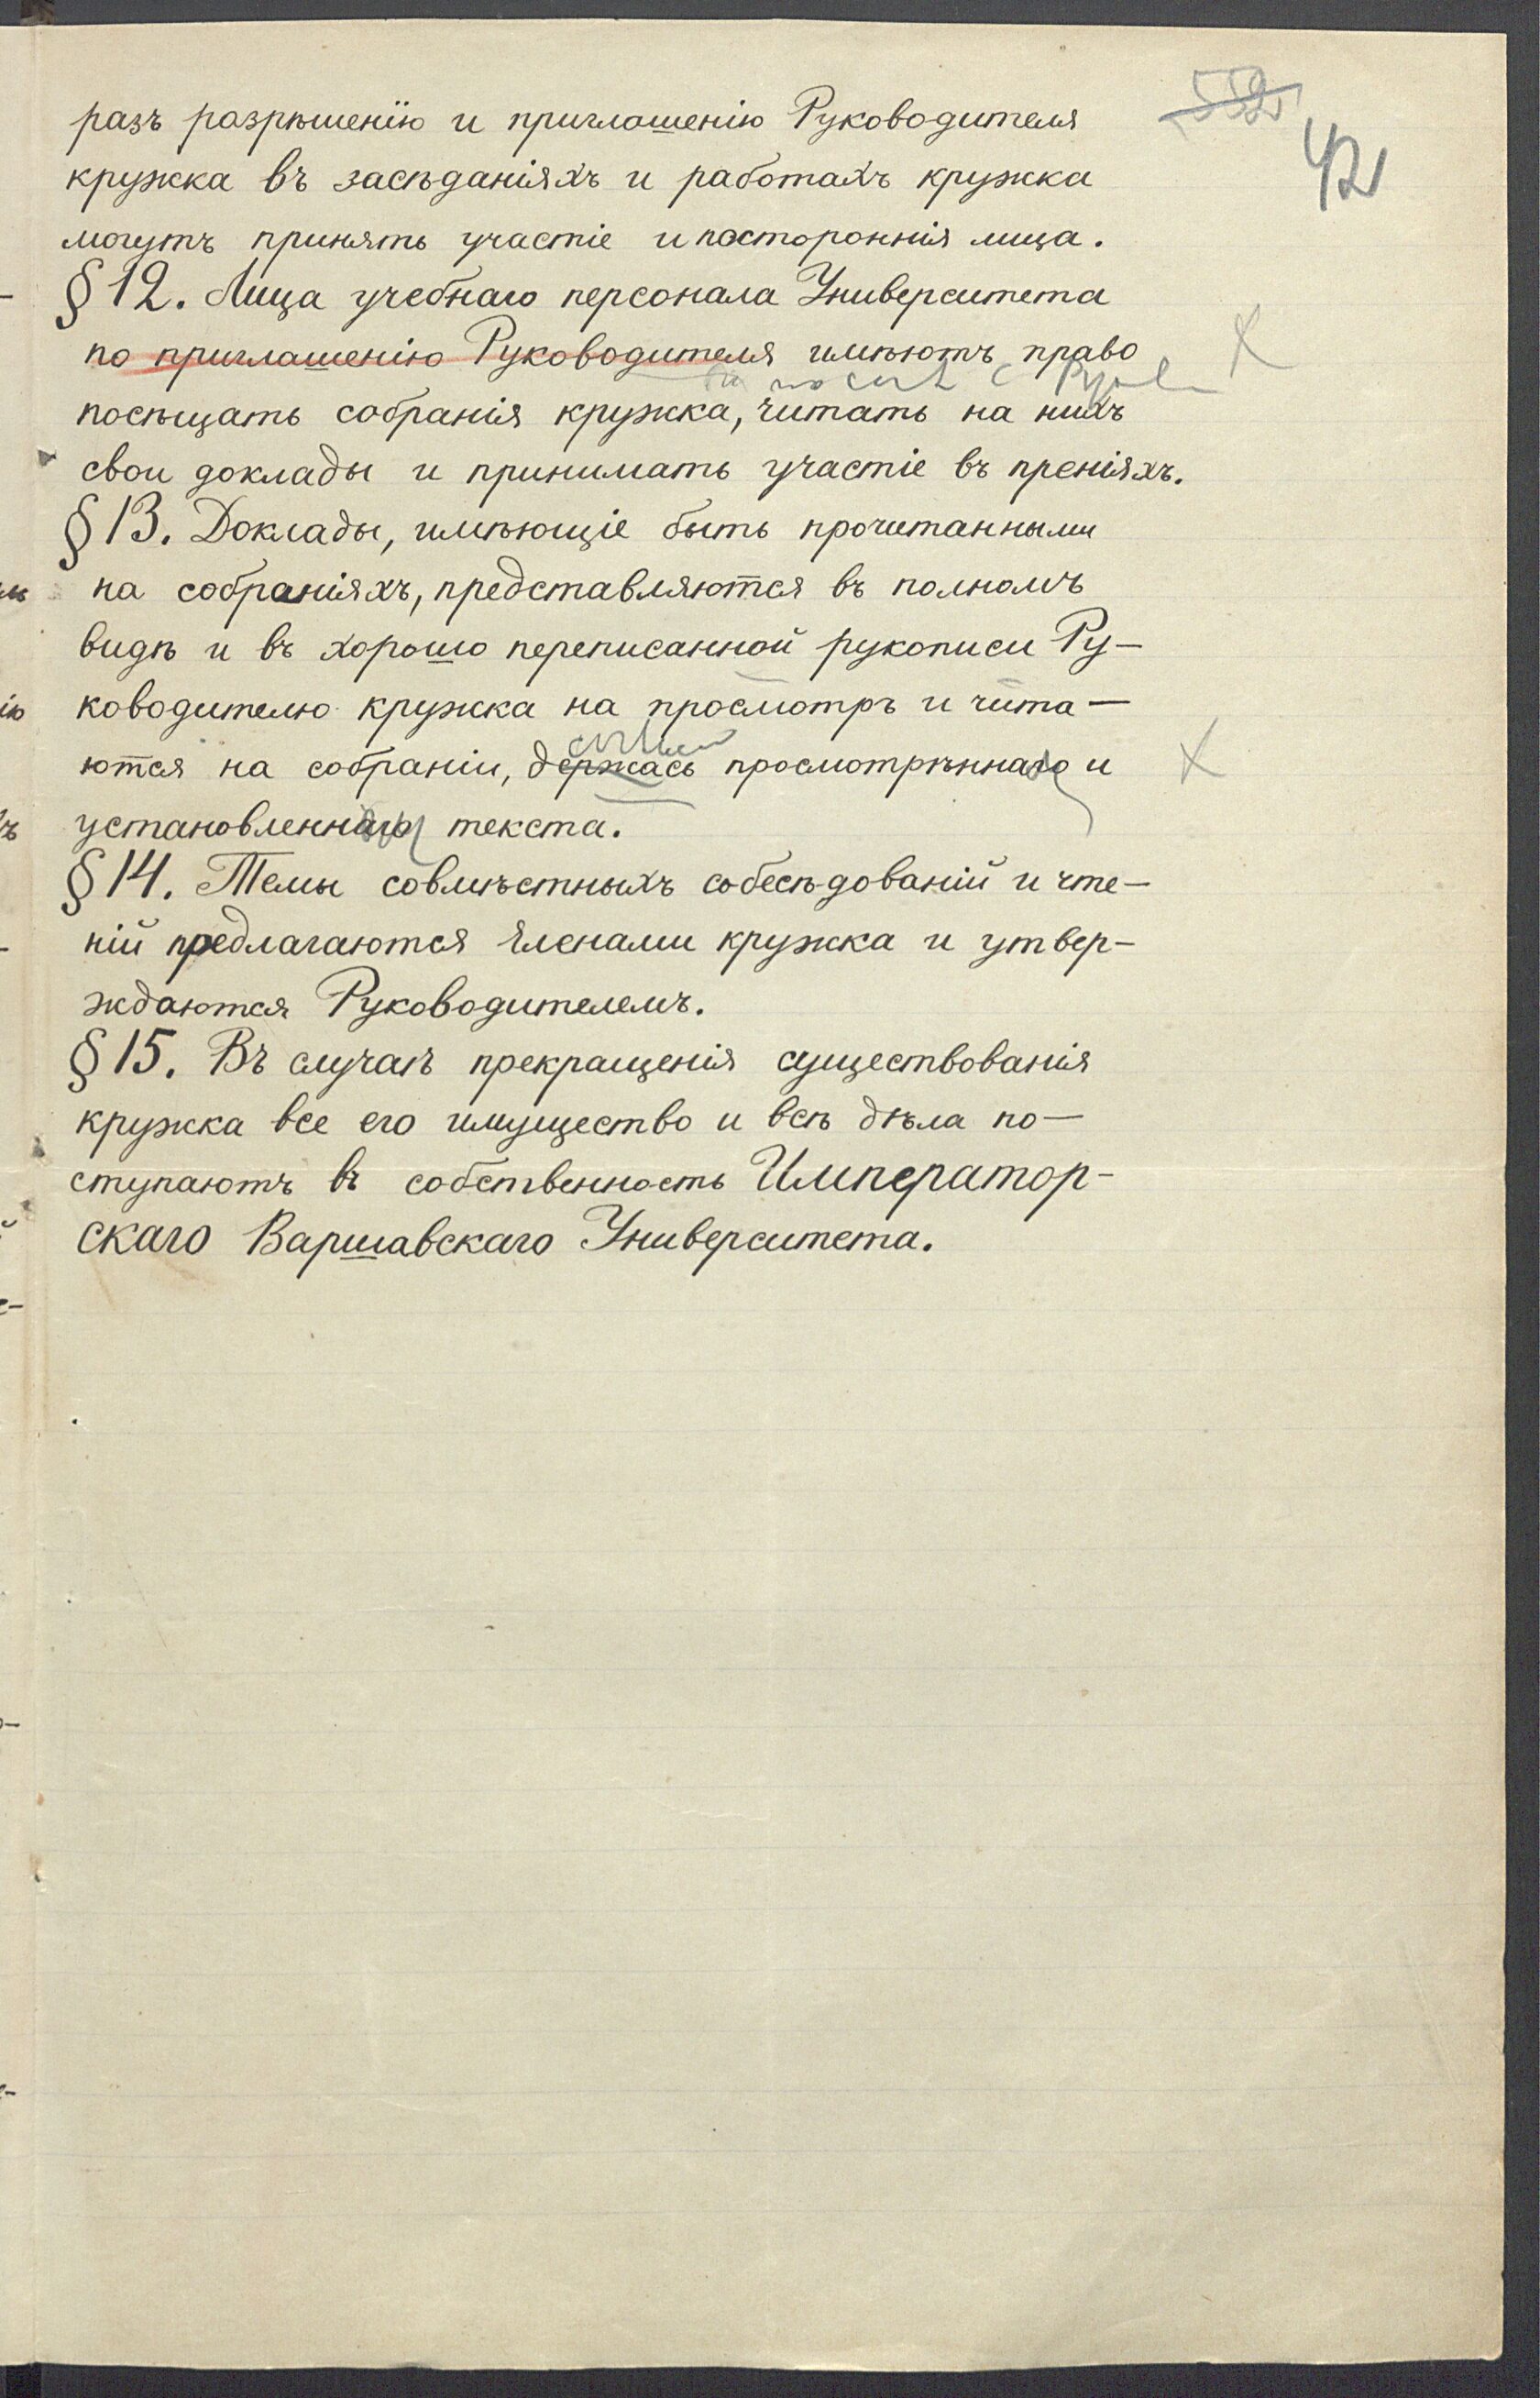 552
42
разъ разрѣшенію и приглашенію Руководителя
кружка въ засѣданіяхъ и работахъ кружка
могутъ принять участіе и постороннія лица.
§ 12. Лица учебнаго персонала Университета
по приглашенію Руководителя имѣютъ право
посѣщать собранія кружка, читать на нихъ
свои доклады и принимать участіе въ преніяхъ.
§ 13. Доклады, имѣющіе быть прочитанными
на собраніяхъ, представляются въ полномъ
видѣ и въ хорошо переписанной рукописи Ру-
ководителю кружка на просмотръ и чита-
ются на собраніи, держась просмотрѣннаго и
установленнаго текста.
§ 14. Темы совмѣстныхъ собесѣдованій и чте-
ній предлагаются членами кружка и утвер-
ждаются Руководителемъ.
§ 15. Въ случаѣ прекращенія существованія
кружка все его имущество и всѣ дѣла по-
ступаютъ въ собственность Император-
скаго Варшавскаго Университета.